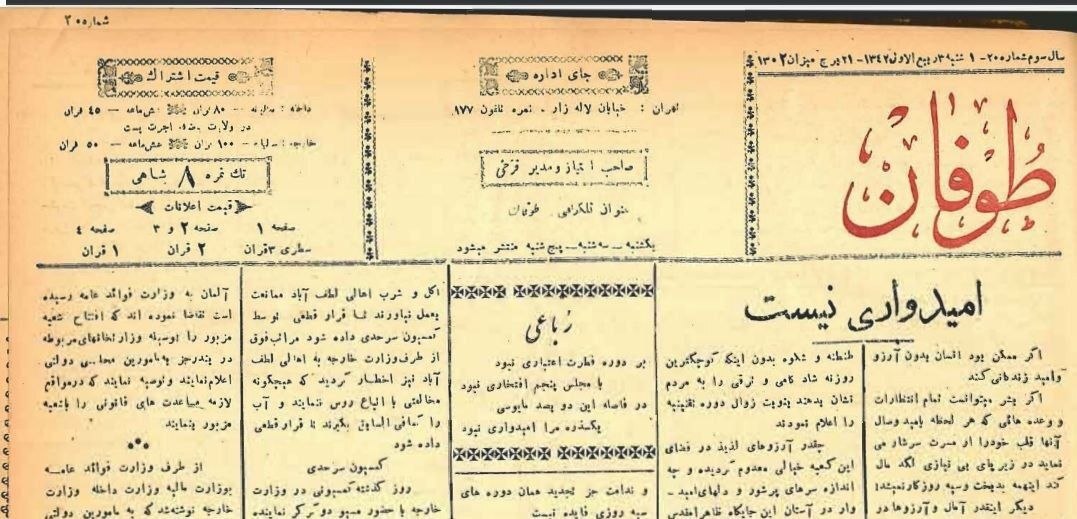 شماره ۲۰
سال سوم شماره ۲۰ – ۱ شنبه ۳ ربیع الاول ۱۳۴۲ – ۲۱ برج میزان ۱۳۰۲
طوفان
جای اداره
تهران : خیابان لاله زار . نمره تلفون ۸۷۷
صاحب امتیاز و مدیر فرخی
عنوان تلگرافی . طوفان
یکشنبه – سه شنبه – پنج شنبه منتشر میشود
قیمت اشتراک
داخله : سالیانه – ۸۰ قران شش‌ماهه – ۴۵ قران
در ولایت بعضه اجرت پست
خارجه : سالیانه – ۱۰۰ قران شش‌ماهه – ۵۰ قران
تك نمره ۸ شاهی
قیمت اعلانات
صفحه ۱ صفحه ۲ و ۳ صفحه ٤
سطری ۳ قران ۲ قران ۱ قران
امیدواری نیست
اگر ممکن بود انسان بدون آرزو
وامید زندگانی کند
اگر بشر میتوانست تمام انتظارات
و وعده هائی که هر لحظه بامید وصال
آنها قلب خودرا از مسرت سرشار می
نماید در زیر پای بی نیازی لگد مال
کند اینهمه بدبخت وسیه روزگار نمیشد!
دیگر اینقدر آمال و آرزوها در
طنطنه و شکوه بدون اینکه کوچکترین
روزنه شاد کامی و ترقی را به مردم
نشان بدهند بنوبت زوال دوره تقنینیه
را اعلام نمودند
چقدر آرزوهای لذیذ در فضای
این کعبه خیالی معدوم گردیده و چه
اندازه سرهای پرشور و دلهای امید –
وار در آستان این جایگاه ظاهرا مقدس
رُباعی
بر دوره فطرت اعتباری نبود
با مجلس پنجم افتخاری نبود
در فاصله این دو بصد مایوسی
یکذره مرا امیدواری نبود
و ندامت جز تجدید همان دوره های
سیه روزی فایده نیست
اکل و شرب اهالی لطف آباد ممانعت
بعمل نیاورند تما قرار قطعی توسط
کمسیون سرحدی داده شود مراتب فوق
از طرف وزارت خارجه به اهالی لطف
آباد نیز اخطار گردید که هیچگونه
مخالفتی با اتباع روس ننمایند و آب
را کمافی السابق بگیرند تا قرار قطعی
داده شود
کمسیون سرحدی
روز گذشته کمسیونی در وزارت
خارجه با حضور مسیو دو ترکر نماینده
آلمان به وزارت فوائد عامه رسیده
است تقاضا نموده اند که افتتاح شعبه
مزبور را بوسیله وزارتخانه‌های مربوطه
در بندرجز به مأمورین محلی دولتی
اعلام نمایند و توصیه نمایند که در مواقع
لازمه مساعدت های قانونی را باشعبه
مزبور بنمایند.
از طرف وزارت فوائد عامه
بوزارت مالیه وزارت داخله وزارت
خارجه نوشته شد که به مأمورین دولتی